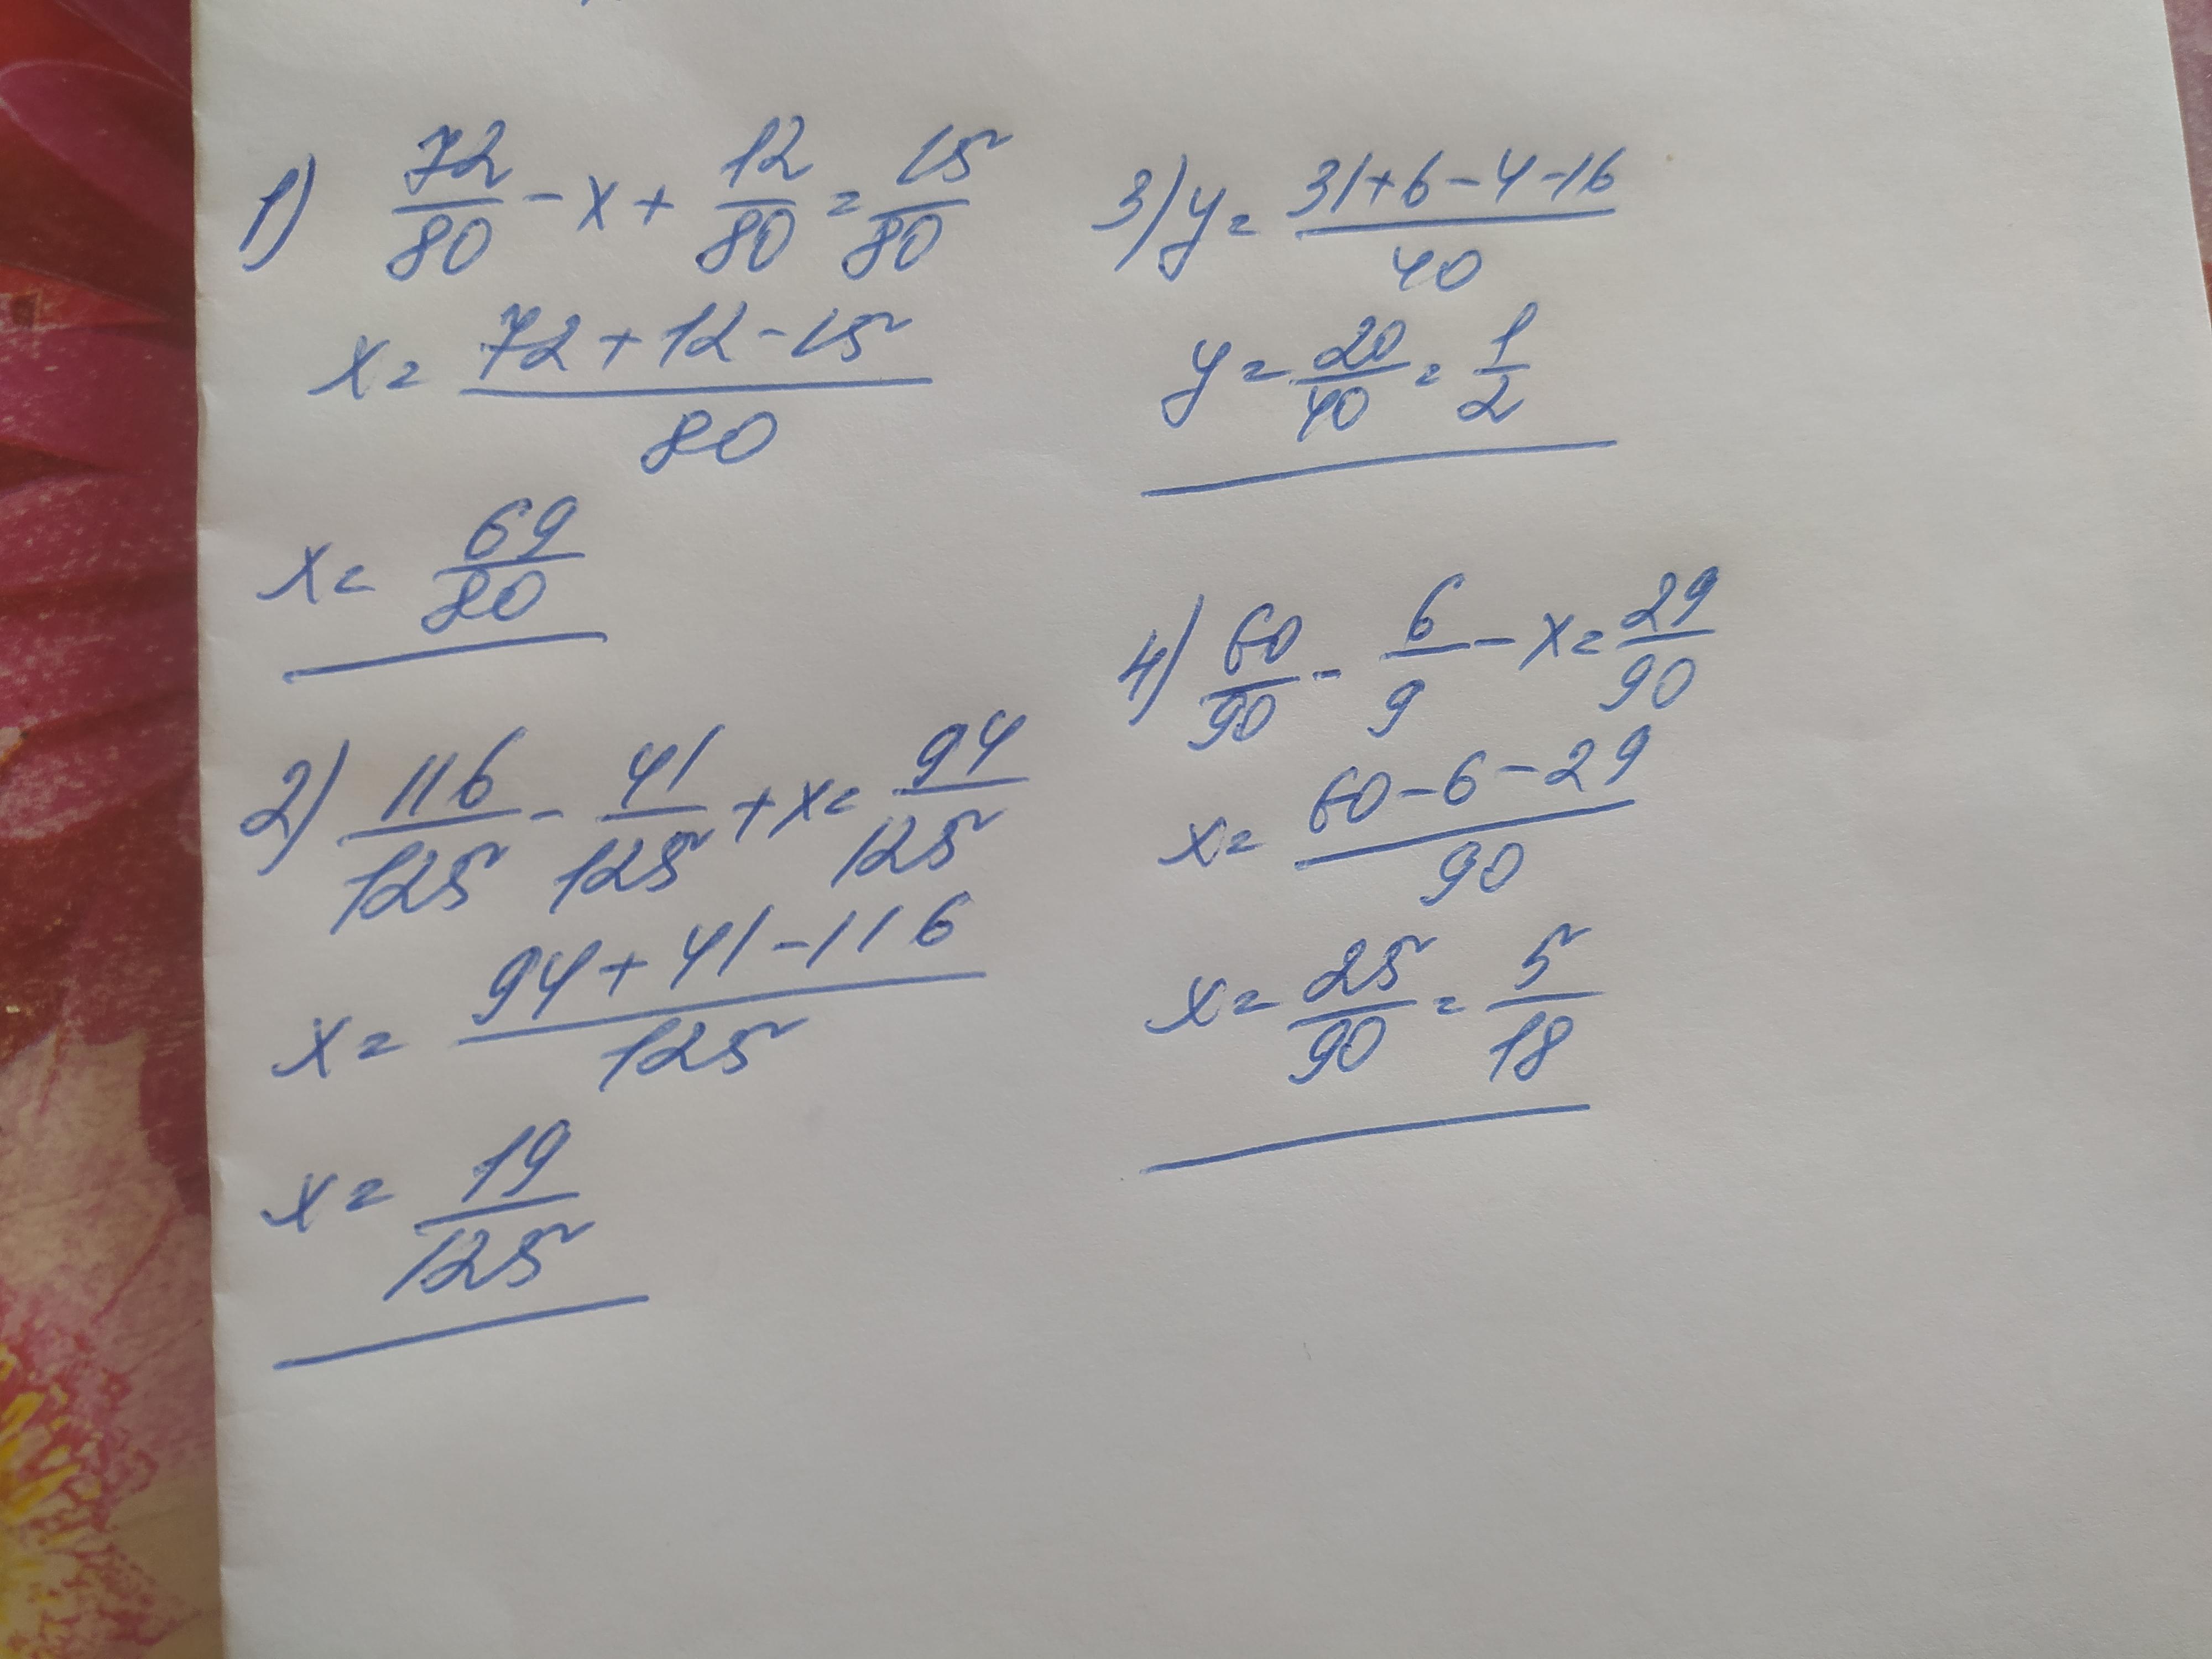 1) 72/80 - x + 12/80 = 15/80
x = 72 + 12 - 15 / 80
x = 69/80
2) 116/125 - 41/125 + x = 94/125
x = 94 + 41 - 116 / 125
x = 19/125
3) y = 31 + 6 - 4 - 16 / 40
y = 20/40 = 1/2
4) 60/90 - 6/9 - x = 29/90
x = 60 - 6 - 29 / 90
x = 25/90 = 5/18